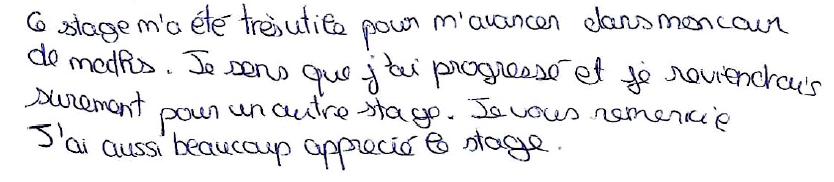 Ce stage m'a été très utile pour m'avancer dans mon cour
de maths. Je sens que j'ai progressé et je reviendrais
surement pour un autre stage. Je vous remercie
J'ai aussi beaucoup apprecié le stage.